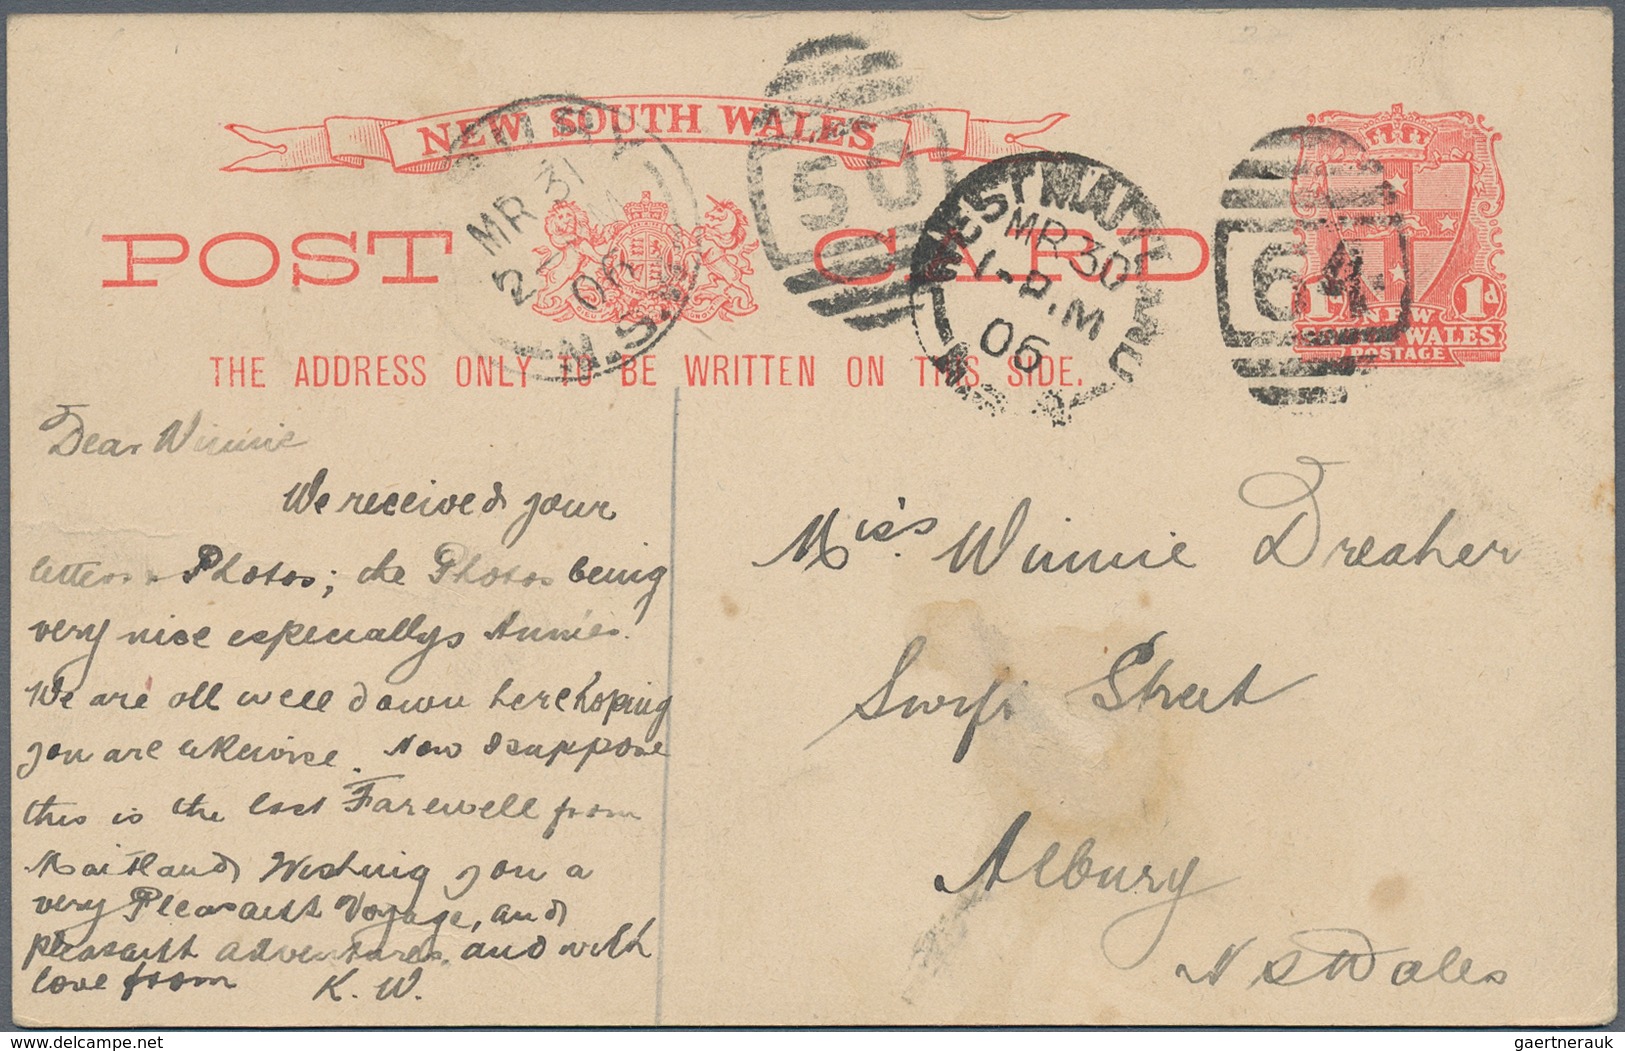 NEW SOUTH WALES
POST CARD
THE ADDRESS ONLY TO BE WRITTEN ON THIS SIDE.
MR 31
2
06
N.S.W
50
WEST MAITLAND
MR 30
1-P.M
06
N.S.W
64
1d 1d
NEW
SOUTH WALES
POSTAGE
Dear Winnie
We received your
letters & Photos; the Photos being
very nice especially Annies.
We are all well down here hoping
you are likewise. Now I suppose
this is the last Farewell from
Maitland Wishing you a
very Pleasant Voyage, and
pleasant adventures, and with
love from K. W.
Miss. Winnie Dreaher
Swift Street
Albury
N S Wales
delcampe.net
gaertnerauk